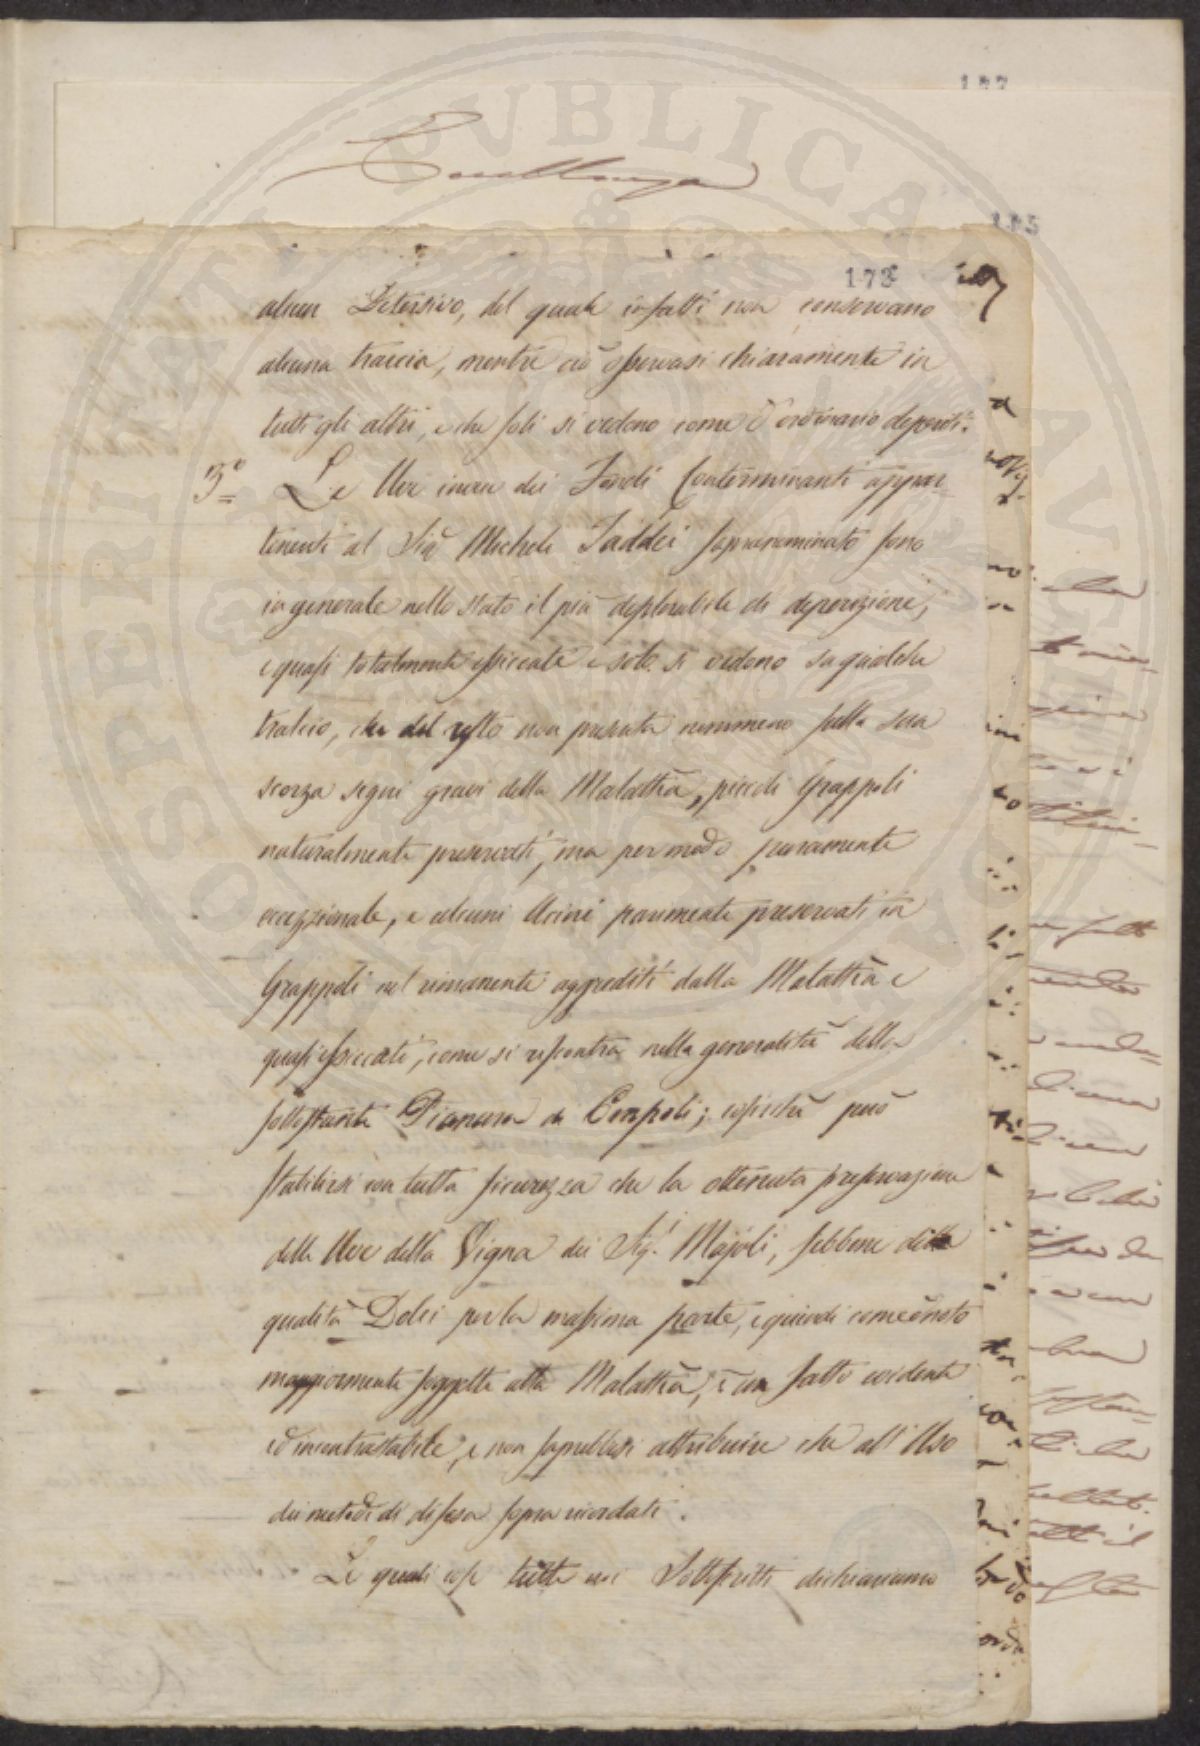 177
Eccellenza
175
173
alcun Detersivo, del quale infatti non conservano
alcuna traccia, mentre ciò osservasi chiaramente in
tutti gli altri, e che soli si vedono come d'ordinario deperiti.
3° Le Uve invece dei Fondi Conterminanti appar-
tenenti al Sig. Michele Taddei sopranominato sono
in generale nello stato il più deplorabile di deperizione,
e quasi totalmente essiccate e solo si vedono su qualche
tralcio, che del resto non presenta nemmeno sulla sua
scorza segni gravi della Malattia, piccoli Grappoli
naturalmente preservati, ma per modo puramente
eccezzionale, e alcuni Acini parimente preservati in
Grappoli nel rimanente aggrediti dalla Malattia e
quasi essiccati, come si riscontra nella generalità della
sottostante Pianura di Empoli; cosicchè può
stabilirsi con tutta sicurezza che la ottenuta preservazione
delle Uve della Vigna dei Sig.ri Majoli, sebbene della
qualità Dolci per la massima parte, e quindi come è noto
maggiormente soggette alla Malattia, è un fatto evidente
ed incontrastabile, e non saprebbesi attribuire che all'Uso
dei metodi di difesa sopra ricordati.
Le quali cose tutte noi Sottoscritti dichiariamo